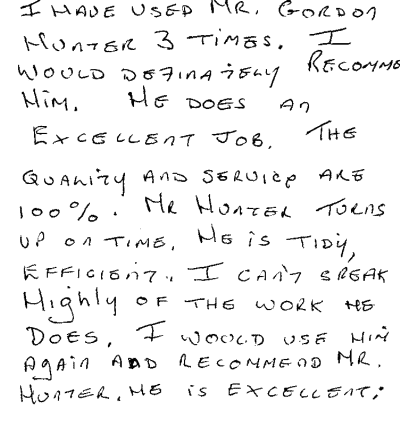 I HAVE USED MR. GORDON
HUNTER 3 TIMES. I
WOULD DEFINATELY RECOMME
HIM. HE DOES AN
EXCELLENT JOB. THE
QUALITY AND SERVICE ARE
100%. MR HUNTER TURNS
UP ON TIME. HE IS TIDY,
EFFICIENT. I CAN'T SPEAK
HIGHLY OF THE WORK HE
DOES. I WOULD USE HIM
AGAIN AND RECOMMEND MR.
HUNTER. HE IS EXCELLENT.